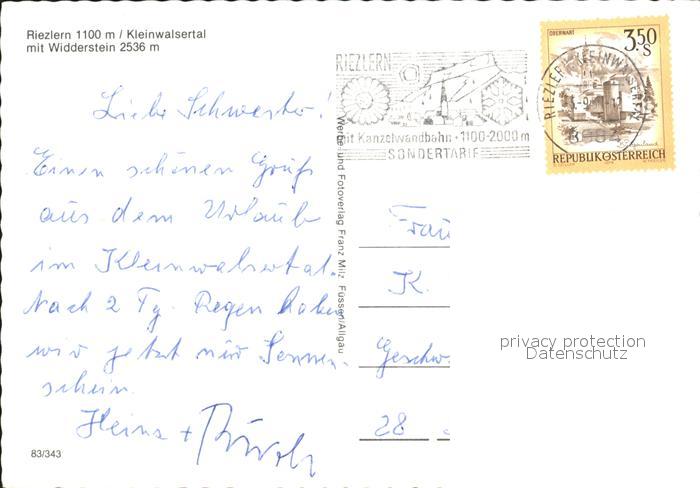 Riezlern 1100 m / Kleinwalsertal
mit Widderstein 2536 m
Liebe Schwester!
Einen schönen Gruß
aus dem Urlaub
im Kleinwalsertal.
Nach 2 Tg. Regen haben
wir jetzt nur Sonnen-
schein.
Heinz +
83/343
Werbe- und Fotoverlag Franz Milz Füssen/Allgäu
RIEZLERN
mit Kanzelwandbahn · 1100-2000 m
SONDERTARIF
OBERWART
3.50
S
REPUBLIK ÖSTERREICH
Frau
K.
Geschw.
28
privacy protection
Datenschutz